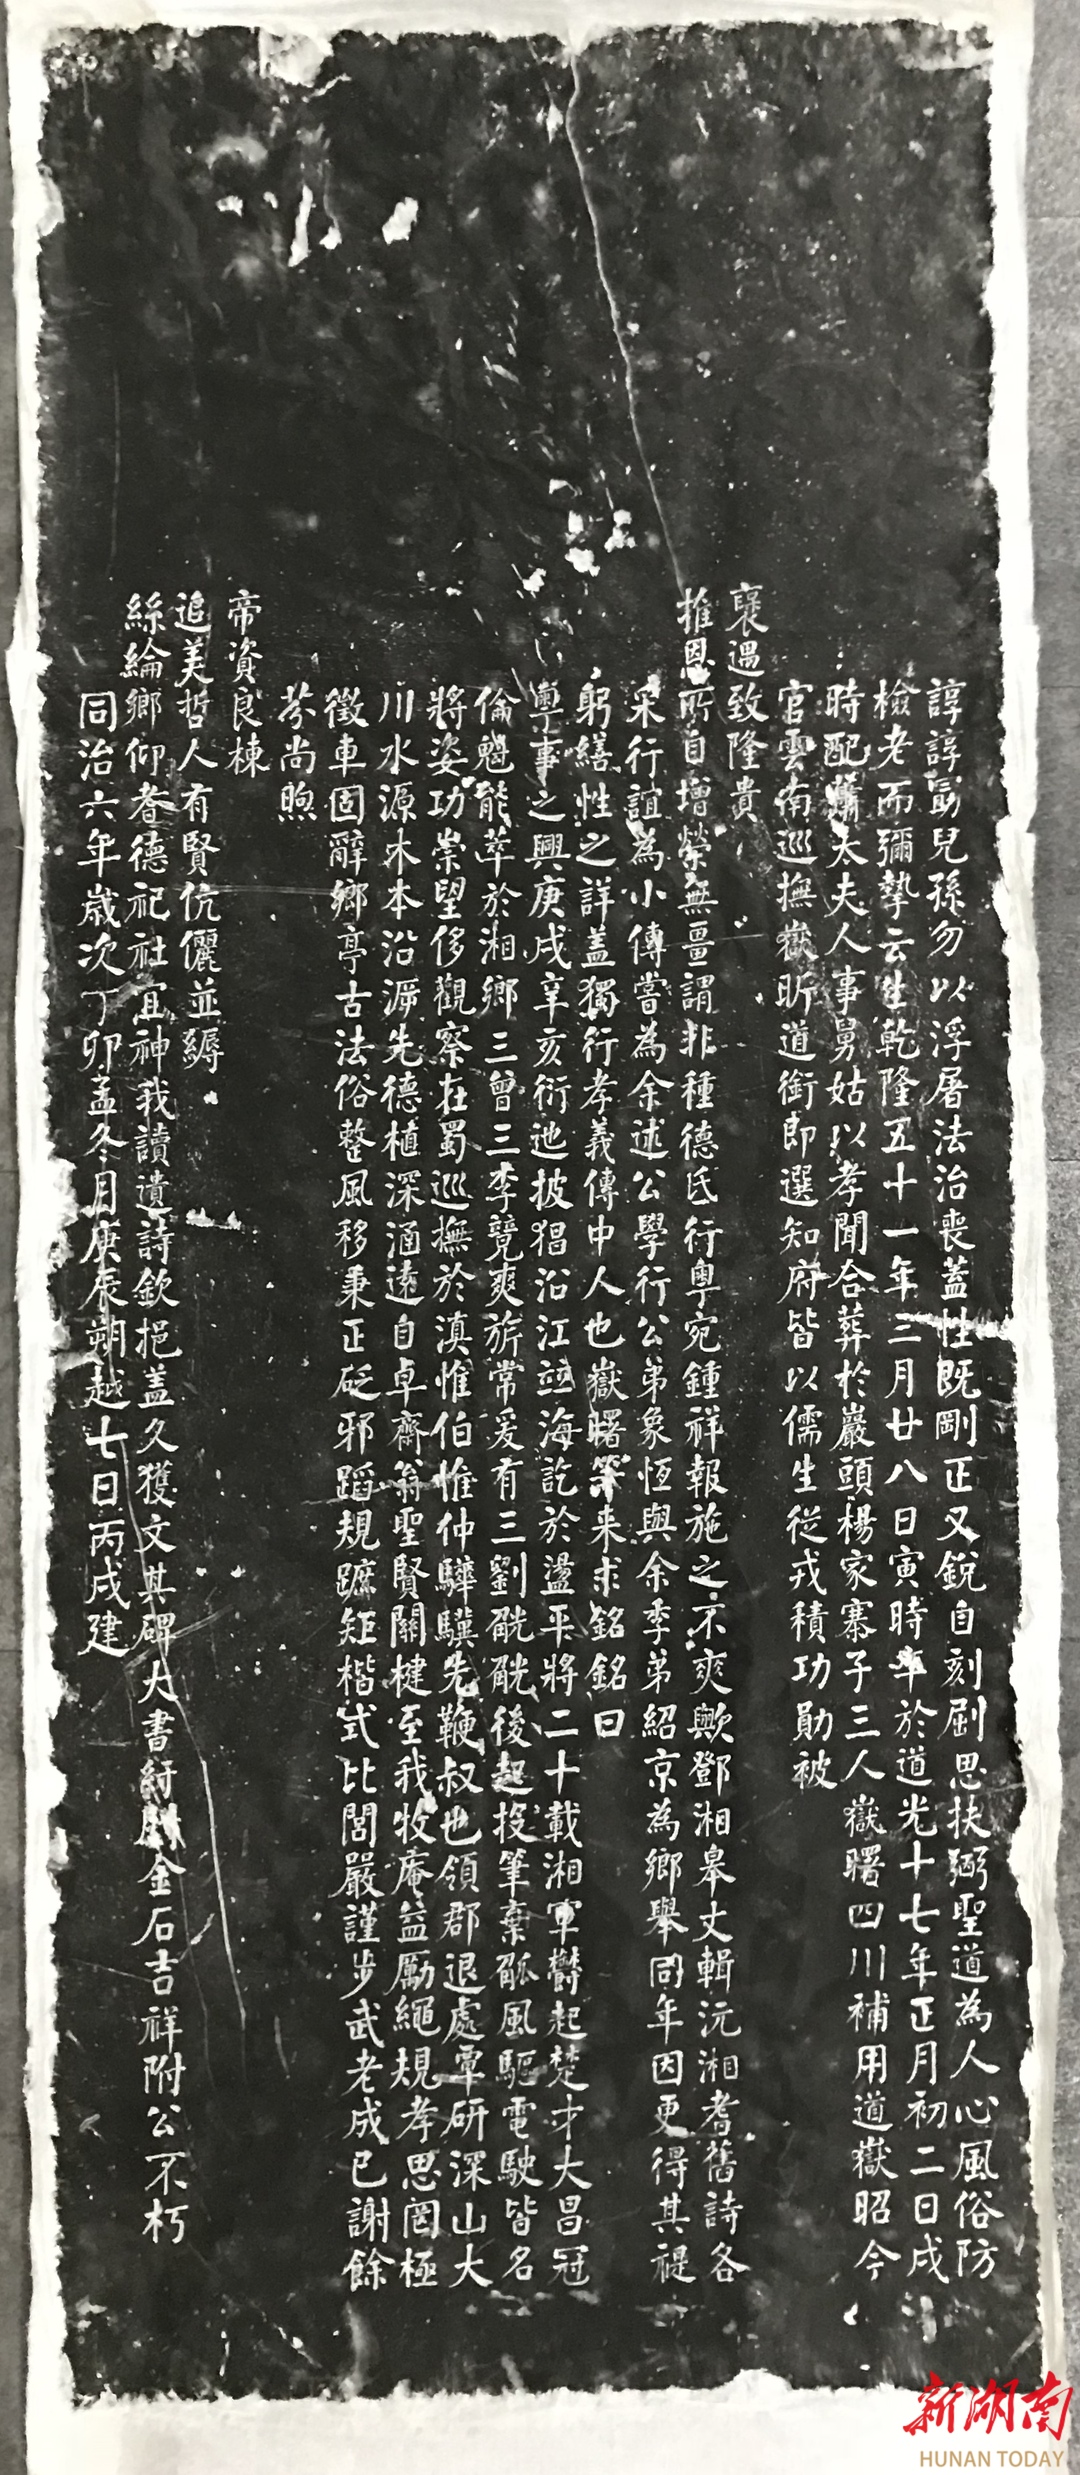 諄諄勗兒孫勿以浮屠法治喪蓋性既剛正又銳自刻劚思扶弼聖道為人心風俗防
檢老而彌摯云生乾隆五十一年三月廿八日寅時卒於道光十七年正月初二日戌
時配蕭太夫人事舅姑以孝聞合葬於巖頭楊家寨子三人嶽曙四川補用道嶽昭今
官雲南巡撫嶽昕道銜即選知府皆以儒生從戎積功勛被
襃遇致隆貴
推恩所自增榮無疆謂非種德氏行粵宛鍾祥報施之不爽歟鄧湘皋丈輯沅湘耆舊詩各
采行誼為小傳嘗為余述公學行公弟象恆與余季弟紹京為鄉舉同年因更得其禔
躬繕性之詳蓋獨行孝義傳中人也嶽曙等来求銘銘曰
粵事之興庚戌辛亥衍迆披猖沿江竝海訖於盪平將二十載湘軍欝起楚才大昌冠
倫魁能萃於湘鄉三曾三李競爽旂常爰有三劉觥觥後起投筆棄觚風驅電駛皆名
將姿功崇望侈觀察在蜀巡撫於滇惟伯惟仲驊驥先鞭叔也領郡退處覃研深山大
川水源木本沿溯先德植深涵遠自卓齋翁聖賢關楗至我牧庵益厲繩規孝思罔極
徵車固辭鄉亭古法俗整風移秉正砭邪蹈規蹠矩楷式比閭嚴謹步武老成已謝餘
芬尚煦
帝資良棟
追美哲人有賢伉儷並縟
絲綸鄉仰耆德祀社宜神我讀遺詩欽挹蓋久獲文其碑大書紆金石吉祥附公不朽
同治六年歲次丁卯孟冬月庚辰朔越七日丙戌建
新湖南
HUNAN TODAY